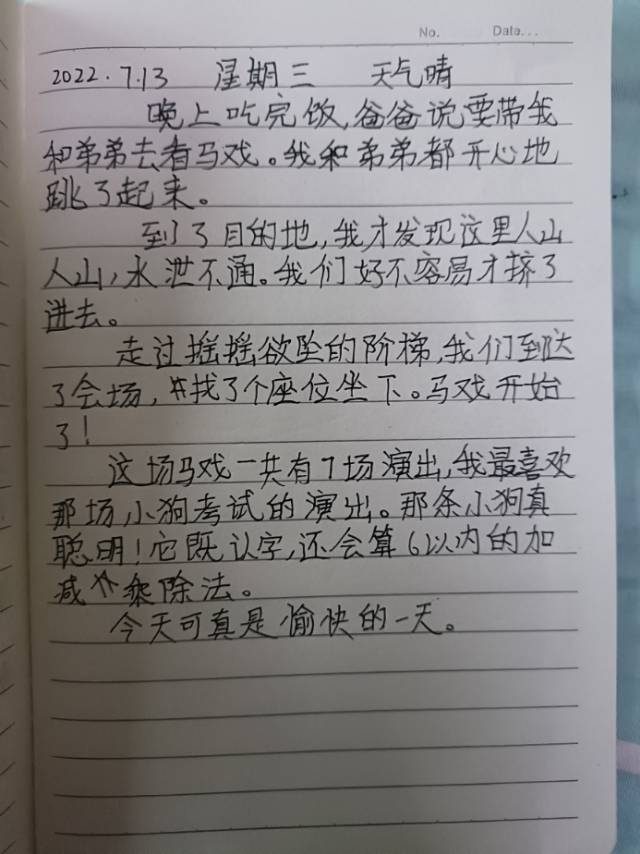 No. Date...
2022.7.13 星期三 天气晴
晚上吃完饭,爸爸说要带我
和弟弟去看马戏。我和弟弟都开心地
跳了起来。
到了目的地,我才发现这里人山
人山,水泄不通。我们好不容易才挤了
进去。
走过摇摇欲坠的阶梯,我们到达
了会场,找了个座位坐下。马戏开始
了!
这场马戏一共有7场演出,我最喜欢
那场小狗考试的演出。那条小狗真
聪明!它既认字,还会算6以内的加
减乘除法。
今天可真是愉快的一天。